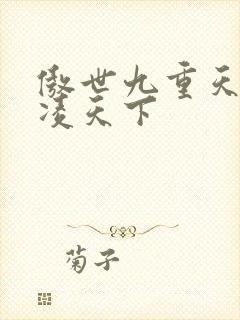 傲世九重天
凌天下
菊子